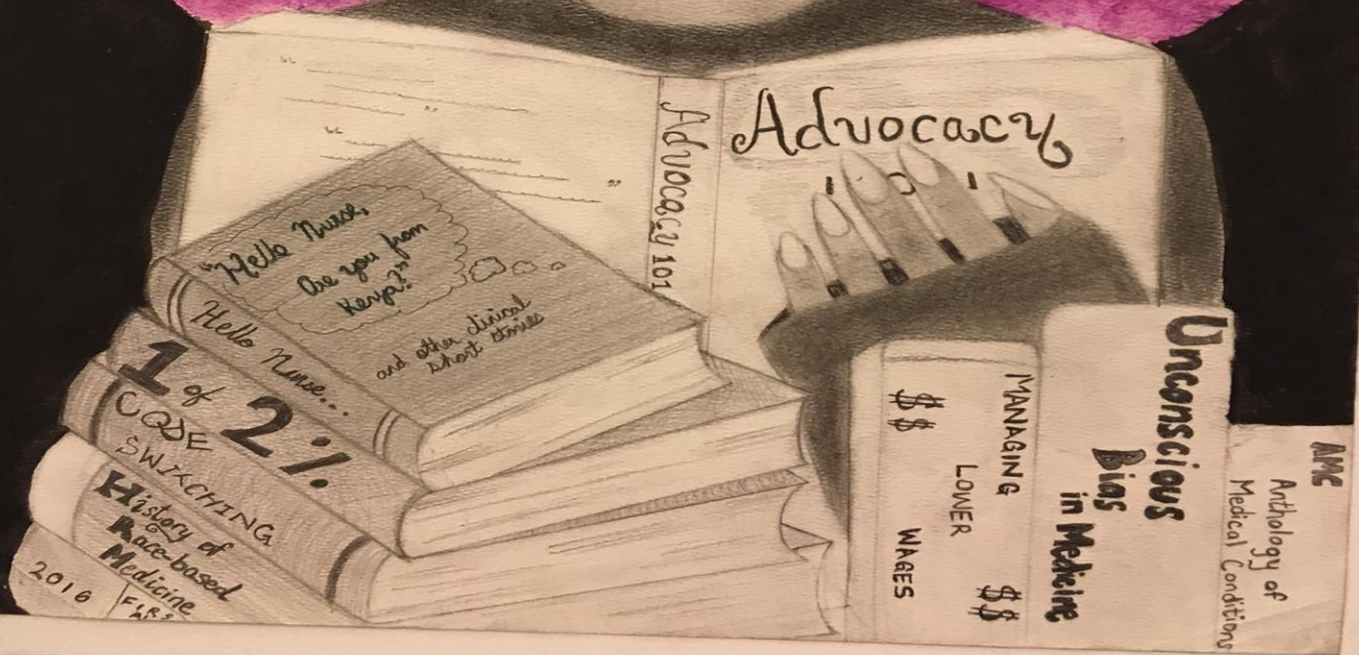 Advocacy
1 0 1
Advocacy 101
"Hello Nurse,
Are you from
Kenya?"
and other clinical
short stories
Hello Nurse...
1 of 2%
CODE
SWITCHING
History of
Race-based
Medicine
2016
MANAGING
LOWER
WAGES
$$
$$
Unconscious
Bias
in Medicine
AMC
Anthology of
Medical Conditions